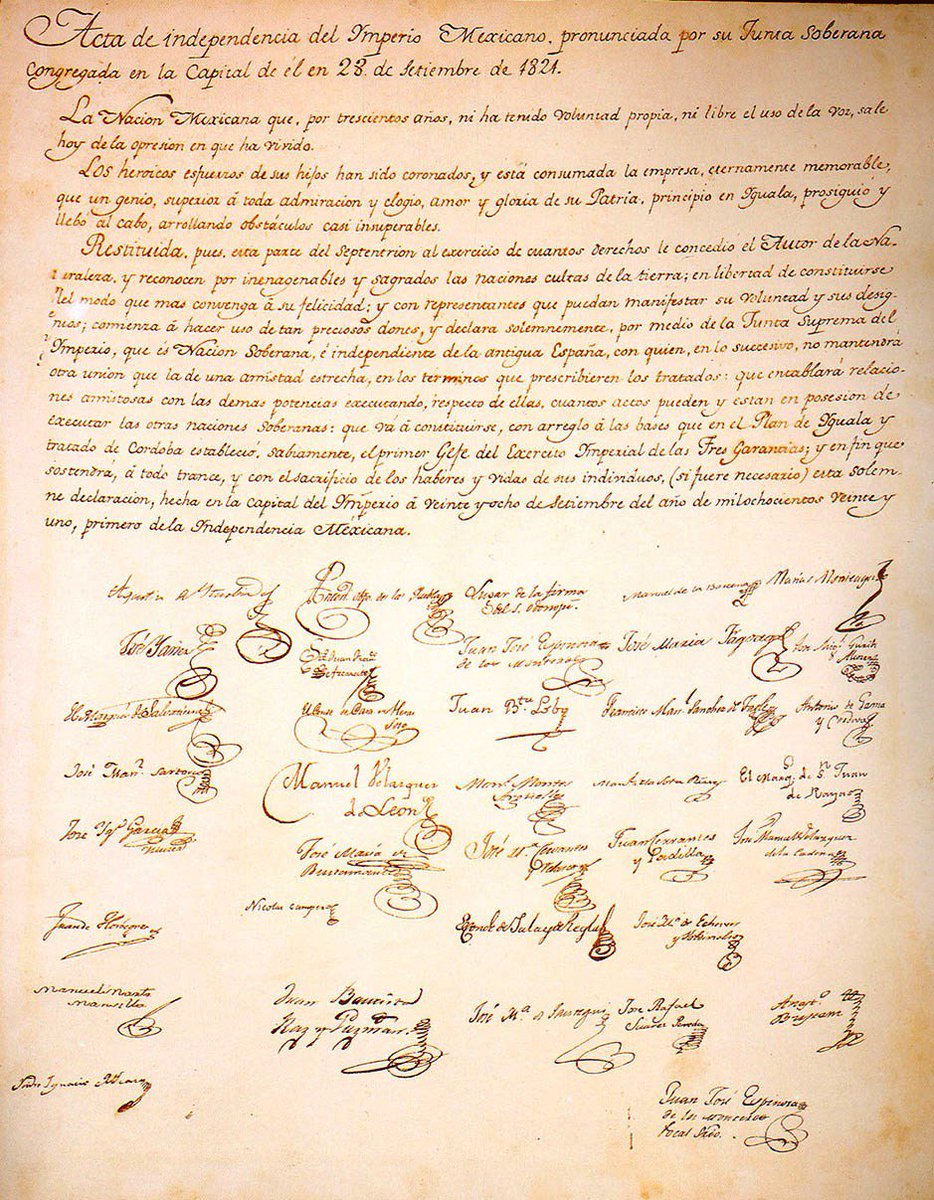 Acta de independencia del Imperio Mexicano, pronunciada por su Junta Soberana
congregada en la Capital de él en 28 de Setiembre de 1821.
La Nacion Mexicana que, por trescientos años, ni ha tenido voluntad propia, ni libre el uso de la voz, sale
hoy de la opresion en que ha vivido.
Los heroicos esfuerzos de sus hijos han sido coronados, y está consumada la empresa, eternamente memorable,
que un genio, superior á toda admiracion y elogio, amor y gloria de su Patria, principió en Iguala, prosiguió y
llebó al cabo, arrollando obstáculos casi insuperables.
Restituida, pues, esta parte del Septentrion al exercicio de cuantos derechos le concedió el Autor de la Na-
turaleza, y reconocen por inenagenables y sagrados las naciones cultas de la tierra; en libertad de constituirse
del modo que mas convenga á su felicidad; y con representantes que puedan manifestar su voluntad y sus desig-
nios; comienza á hacer uso de tan preciosos dones, y declara solemnemente, por medio de la Junta Suprema del
Imperio, que és Nacion Soberana, é independiente de la antigua España, con quien, en lo succesivo, no mantendrá
otra union que la de una amistad estrecha, en los terminos que prescribieren los tratados: que entablará relacio-
nes amistosas con las demas potencias executando, respecto de ellas, cuantos actos pueden y estan en posesion de
executar las otras naciones Soberanas: que vá á constituirse, con arreglo á las bases que en el Plan de Iguala y
tratado de Cordoba estableció, sabiamente, el primer Gefe del Exercito Imperial de las Tres Garantias; y en fin que
sostendrá, á todo trance, y con el sacrificio de los haberes y vidas de sus individuos, (si fuere necesario) esta solem-
ne declaracion, hecha en la capital del Imperio á veinte y ocho de Setiembre del año de mil ochocientos veinte y
uno, primero de la Independencia Mexicana.
Lugar de la firma
Manuel de la Barcena
Matias Monteagudo
José Yañez
Juan José Espinosa
de los Monteros
José Maria Fagoaga
Juan Bta Lobo
Francisco Manl Sanchez de Tagle
Antonio de Gama
y Cordova
José Manl Sartorio
Manuel Velazquez
de Leon
Manl Montes
Arguelles
El Marqs de Sn Juan
de Rayas
José Igo Garcia
José Maria de
Bustamante
José Ma Cervantes
y Velasco
Juan Cervantes
y Padilla
José Manuel Velazquez
de la Cadena
Juan de Horbegoso
Nicolas Campero
El conde de Jala y de Regla
José Ma de Echeverz
y Valdivielso
Manuel Martz
Mansilla
Juan Bautista
Raz y Guzman
José Ma de Jauregui
José Rafael
Suarez Pereda
Anasto
Bustam
Juan José Espinosa
de los Monteros
Vocal Srio.